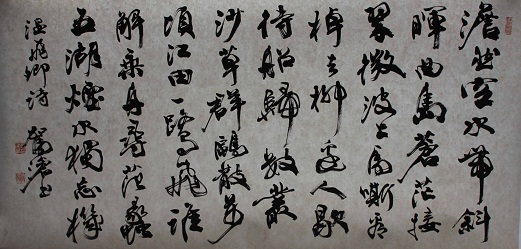 澹然空水帶斜
暉曲島蒼茫接
翠微波上馬嘶看
棹去柳邊人歇
待船歸數叢
沙草群鷗散万
頃江田一鷺飛誰
解乘舟尋范蠡
五湖煙水獨忘機
温飛卿詩